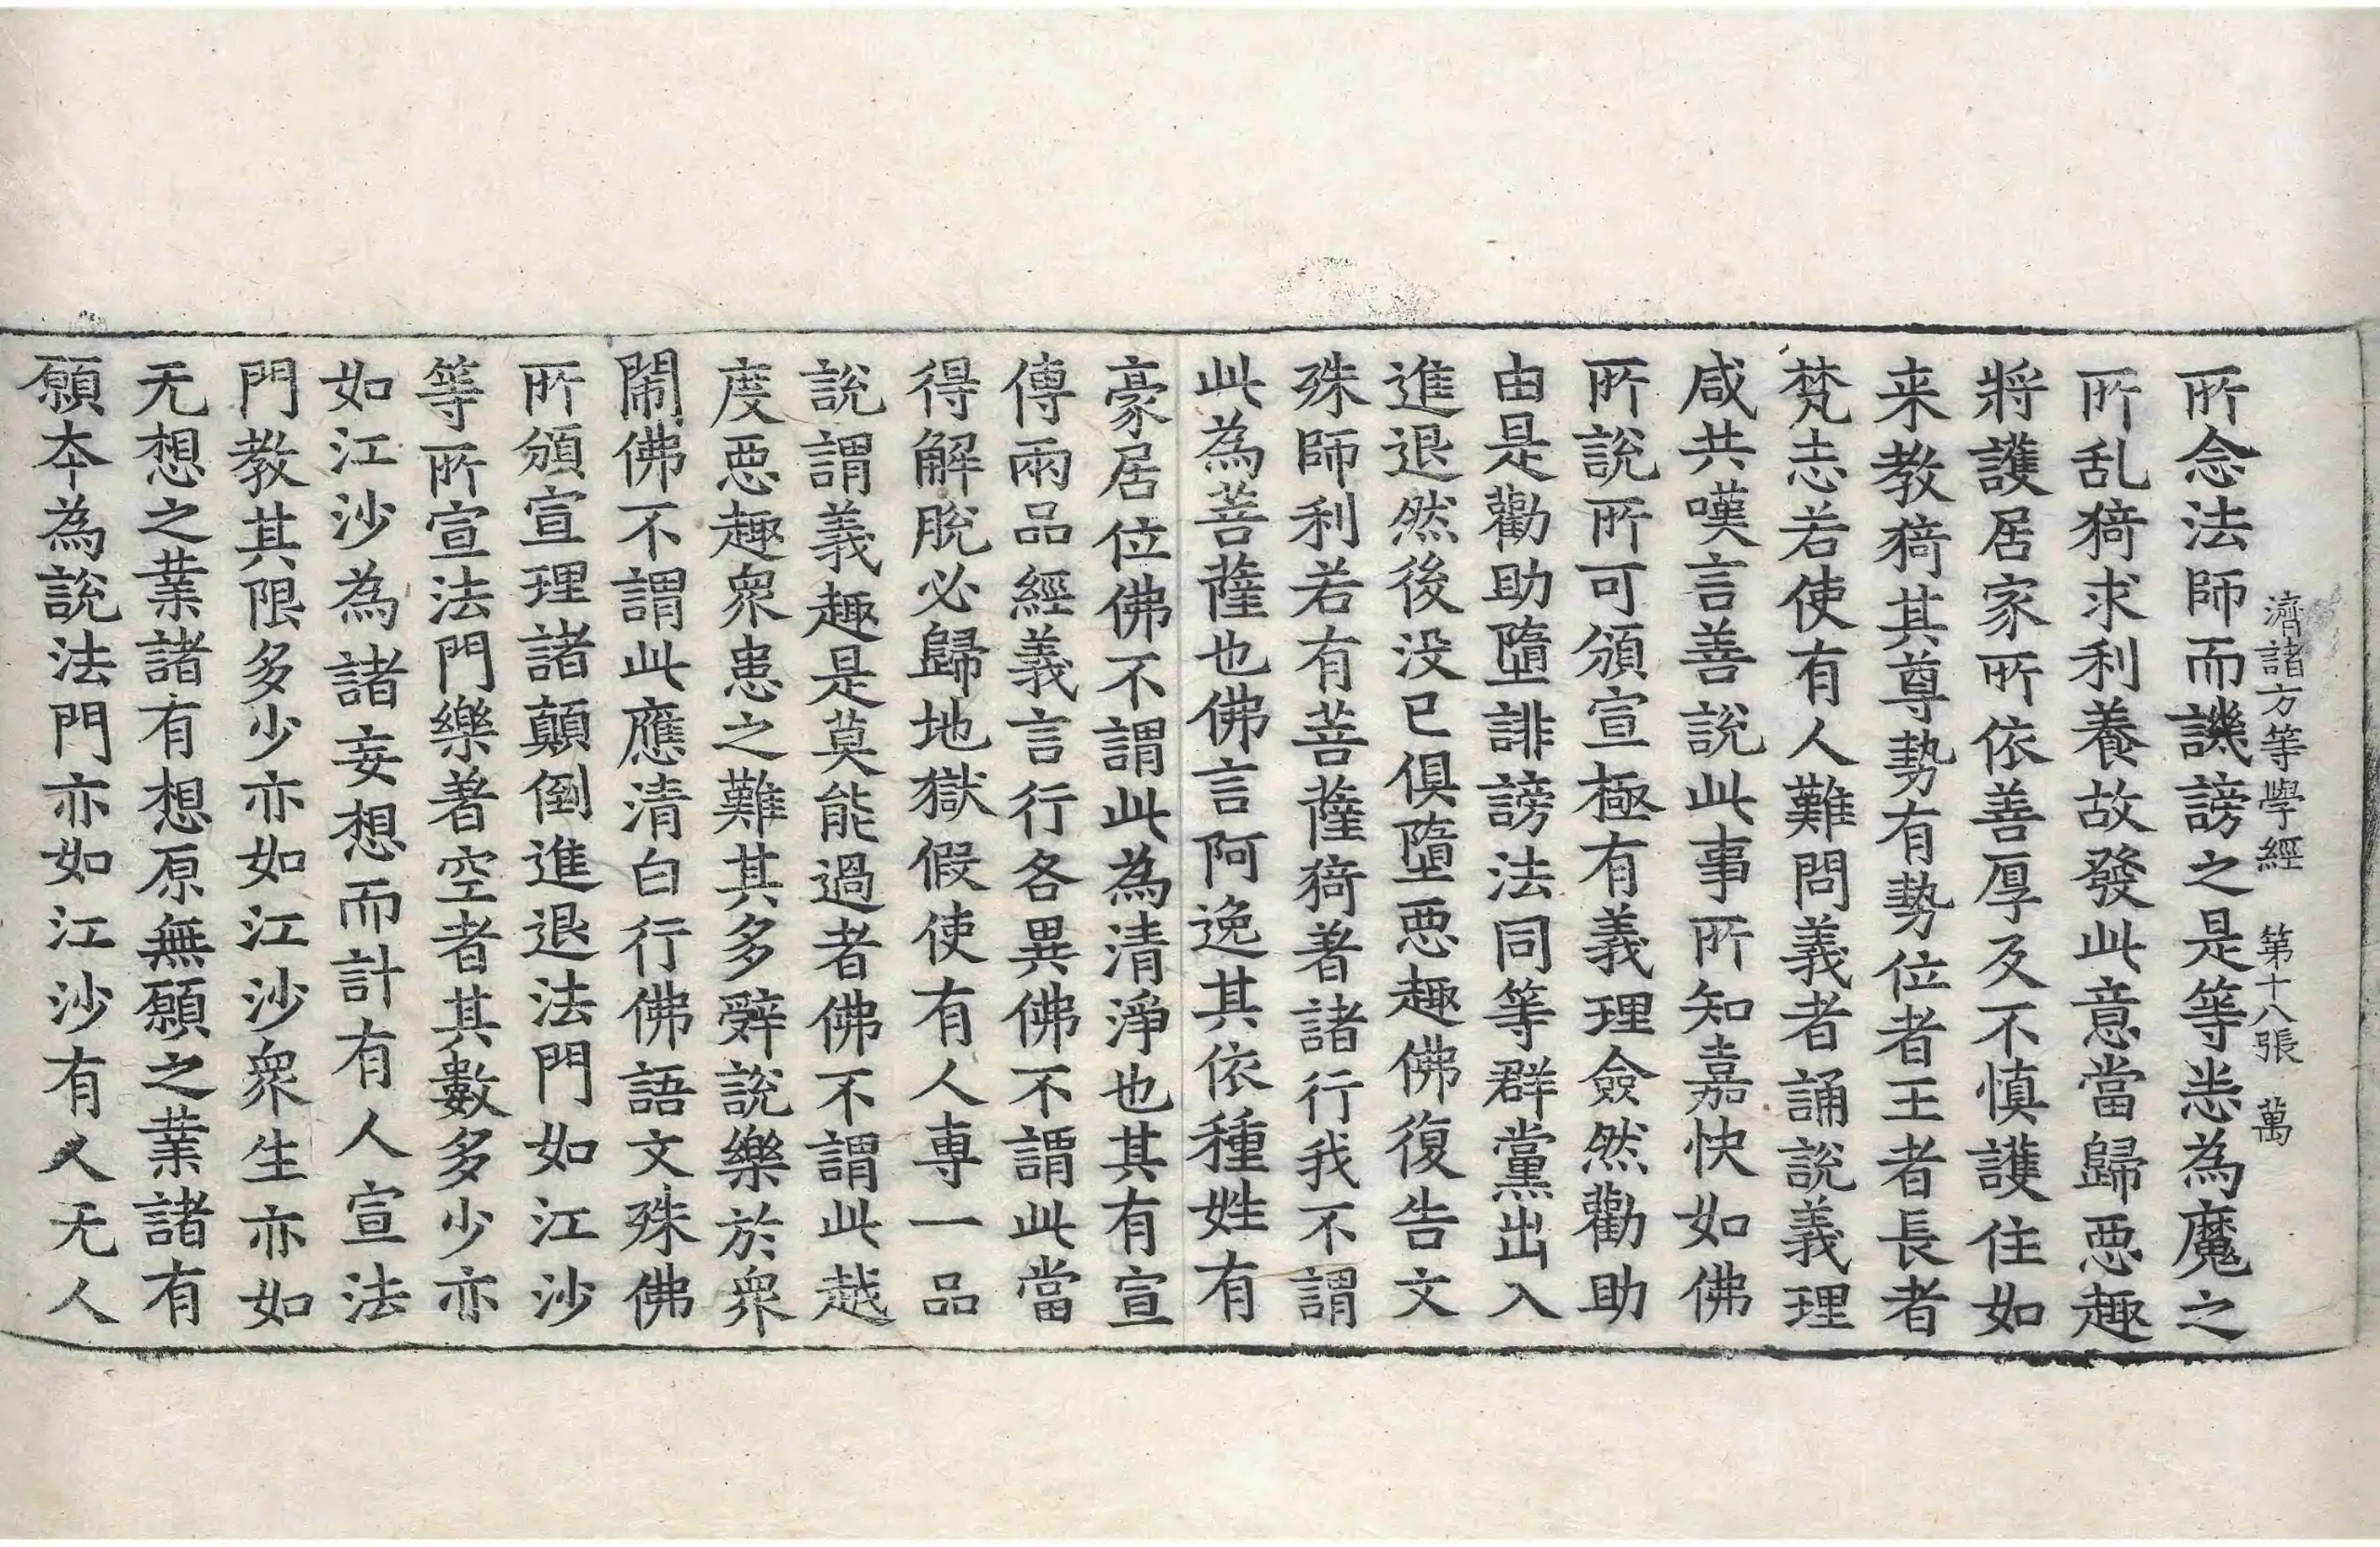 濟諸方等學經 第十八張 萬
所念法師而譏謗之是等恙為魔之
所乱猗求利養故發此意當歸惡趣
將護居家所依善厚及不慎護住如
来教猗其尊勢有勢位者王者長者
梵志若使有人難問義者誦說義理
咸共嘆言善說此事所知嘉快如佛
所說所可頒宣極有義理僉然勸助
由是勸助墮誹謗法同等群黨出入
進退然後没已俱墮惡趣佛復告文
殊師利若有菩薩猗著諸行我不謂
此為菩薩也佛言阿逸其依種姓有
豪居位佛不謂此為清淨也其有宣
傳兩品經義言行各異佛不謂此當
得解脫必歸地獄假使有人專一品
說謂義趣是莫能過者佛不謂此越
度惡趣衆患之難其多辤說樂於衆
閙佛不謂此應清白行佛語文殊佛
所頒宣理諸顛倒進退法門如江沙
等所宣法門樂著空者其數多少亦
如江沙為諸妄想而計有人宣法
門教其限多少亦如江沙衆生亦如
无想之業諸有想原無願之業諸有
願本為說法門亦如江沙有人无人